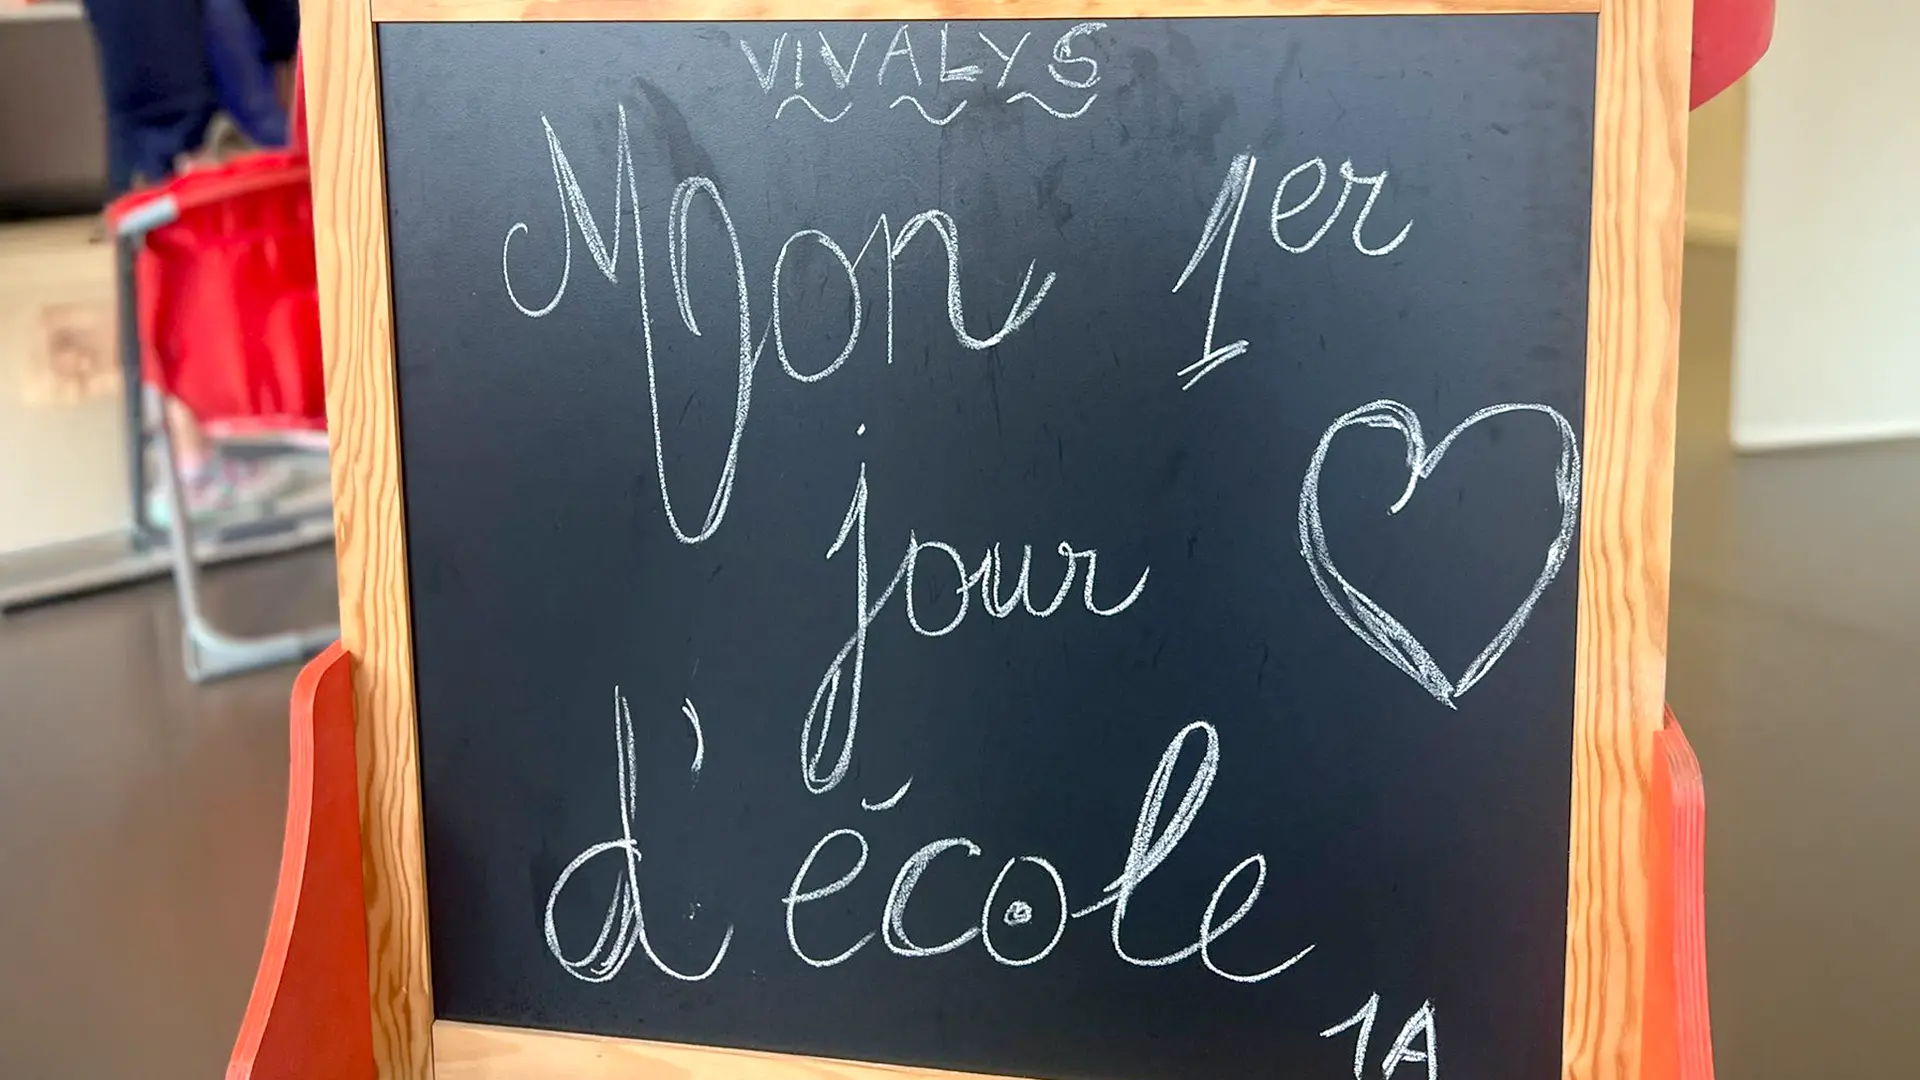 VIVALYS
Mon 1er
jour
d'école
1A